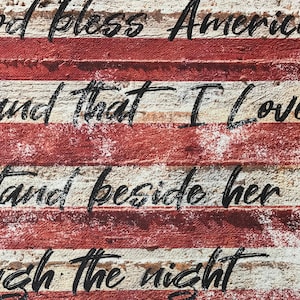 od bless Americ
and that I Love
tand beside her
ugh the night